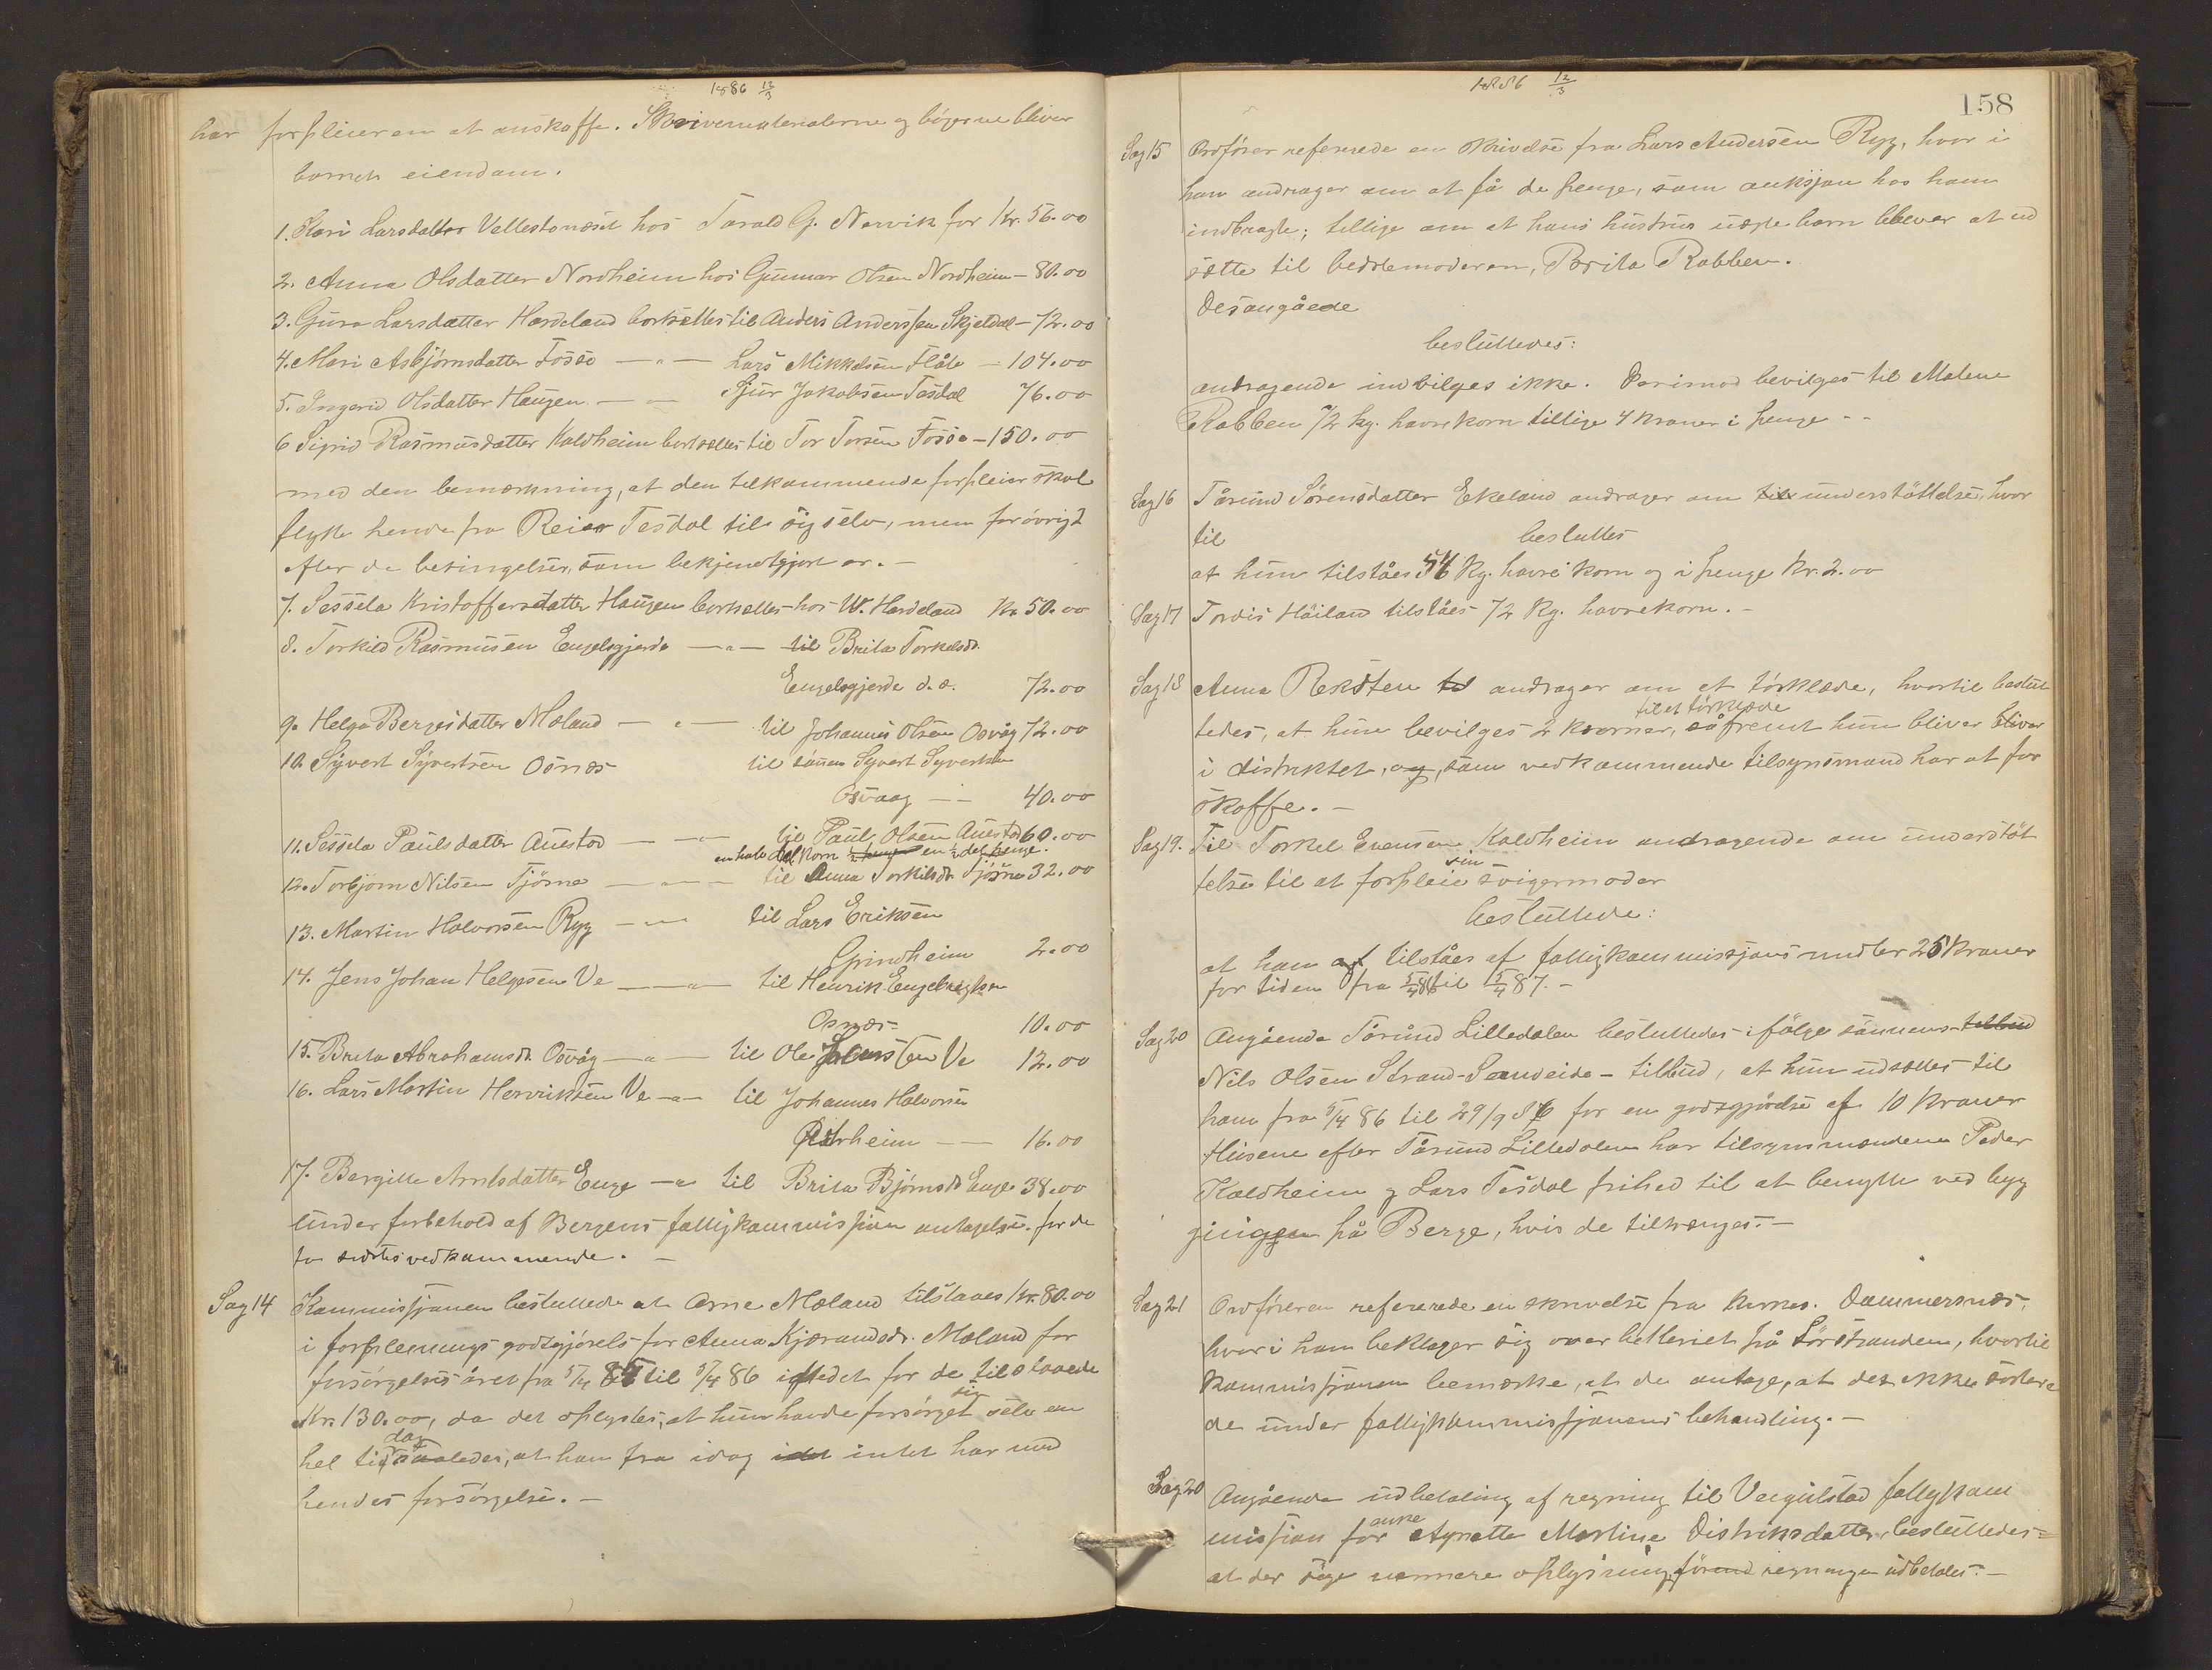 1886 12/3
har forpliceren at anskaffe. Skrivematerialerne og bøgerne bliver
barnets eiendom.
1. Kari Larsdatter Vallestonæset hos Tarald G. Nervik for Kr. 56.00
2. Anna Olsdatter Nordheim hos Gunnar Olsen Nordheim - 80.00
3. Gura Larsdatter Hardeland bortsættes til Anders Anderssen Skjeldal - 72.00
4. Mari Asbjørnsdatter Fosse — " — Lars Mikkelsen Flåte - 104.00
5. Ingerid Olsdatter Haugen — " — Sjur Jakobsen Tesdal 76.00
6 Sigrid Rasmusdatter Kaldheim bortsættes til Tor Torsen Fosse - 150.00
med den bemærkning, at den tilkommende forpleier skal
flytte hende fra Reier Tesdal til sig selv, men forøvrigt
efter de betingelser, som bekjendtgjort er. —
7. Sessela Kristoffersdatter Haugen bortsættes hos W. Hardeland Kr 50.00
8. Torkild Rasmusen Engelsgjerde — " — til Brita Torkelsdr.
Engelsgjerde d. æ. 72.00
9. Helga Bergesdatter Mæland — " — til Johannes Olsen Osvåg 72.00
10. Syvert Syvertsen Osnes til sønen Syvert Syvertsen
Osvaag — " 40.00
11. Sessela Paulsdatter Auestad — " — til Paul Olsen Auestad 60.00
en halv del korn en ½ del penge.
12. Torbjørn Nilsen Tjørna — " — til Anna Torkilsdr. Tjørna 32.00
13. Martin Halvorsen Ryg — " — til Lars Eriksen
Grindheim 2.00
14. Jens Johan Helgesen Ve — " — til Henrik Engelbregtsen
Osnæs 10.00
15. Brita Abrahamsdr. Osvåg — " — til Ole Jenssen Ve 12.00
16. Lars Martin Henriksen Ve — " — til Johannes Halvorsen
heim — — 16.00
17. Bergitte Arnesdatter Enge — " til Brita Bjørnsdr. Enge 38.00
under forbehold af Bergens fattigkommissjon antagelse for de
to sidstes vedkommende. —
Sag 14 Kommissjonen besluttede at Arne Mæland tilstaaes Kr. 80.00
i forpleinings godtgjørels for Anna Kjærandsdr. Mæland for
forsørgelses året fra 5/4 85 til 5/4 86 istedet for de tilstaaede
Kr. 130.00, da det oplystes, at hun havde forsørget sig selv en
hel tid dog saaledes, at han fra idag intet har med
hendes forsørgelse. —
1886 12/3
158
Sag 15 Ordfører refererede en skrivelse fra Lars Andersen Ryg, hvor i
han andrager om at få de penge, som auksjon hos ham
indbragte; tillige om at hans hustrus uægte barn blever at ud
sætte til bedstemoderen, Brita Rabben.
Desangåede
besluttedes:
andragende indvilges ikke. Derimod bevilges til Malene
Rabben 72 kg. havrekorn tillige 4 kroner i penge - -
Sag 16 Tårund Sørensdatter Ekeland andrager om til understøttelse, hvor
til besluttes
at hun tilståes 56 Kg. havre korn og i penge Kr. 2.00
Sag 17 Tordis Høiland tilståes 72 Kg. havrekorn. -
Sag 18 Anna Reksten til andrager om et tørklæde, hvortil beslut
til et tørklæde
tedes, at hun bevilges 2 kroner, såfremt hun bliver bliver
i distriktet, og, som vedkommende tilsynsmand har at for
skaffe. —
Sag 19. Til Torkel Evensen Kaldheim andragende om understøt
telse til at forpleie sin svigermoder
besluttede:
at ham af tilståes af fattigkommissjons midler 25 Kroner
for tiden fra 5/4 86 til 5/4 87. —
Sag 20 Angående Tårund Lilledalen besluttedes ifølge sønnens tilbud
Nils Olsen Strand-Sandeide - tilbud, at hun udsættes til
ham fra 5/4 86 til 29/9 86 for en godtgjørelse af 10 Kroner
Husene efter Tårund Lilledalen har tilsynsmændene Peder
Kaldheim og Lars Tesdal frihed til at benytte ved byg
gingen på Berge, hvis de tiltrænges. —
Sag 21 Ordføreren refererede en skrivelse fra Dommersnæs,
hvori han beklager sig over betleriet på Sørstranden, hvortil
kommissjonen bemærke, at de antage, at det ikke sortere
de under fattigkommissjonens behandling. —
Sag 20 Angående udbetaling af regning til Vergulstad fattigkom
missjon for Agnatte Martine Distriksdatter besluttedes =
at der søge nærmere oplysning, førend regningen udbetales. —